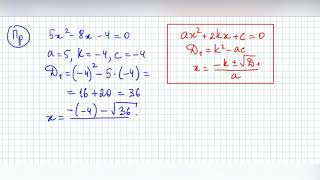 Пр
5x² - 8x - 4 = 0
a = 5, k = -4, c = -4
D₁ = (-4)² - 5 · (-4) =
= 16 + 20 = 36
x = -(-4) - √36
ax² + 2kx + c = 0
D₁ = k² - ac
x = (-k ± √D₁) / a